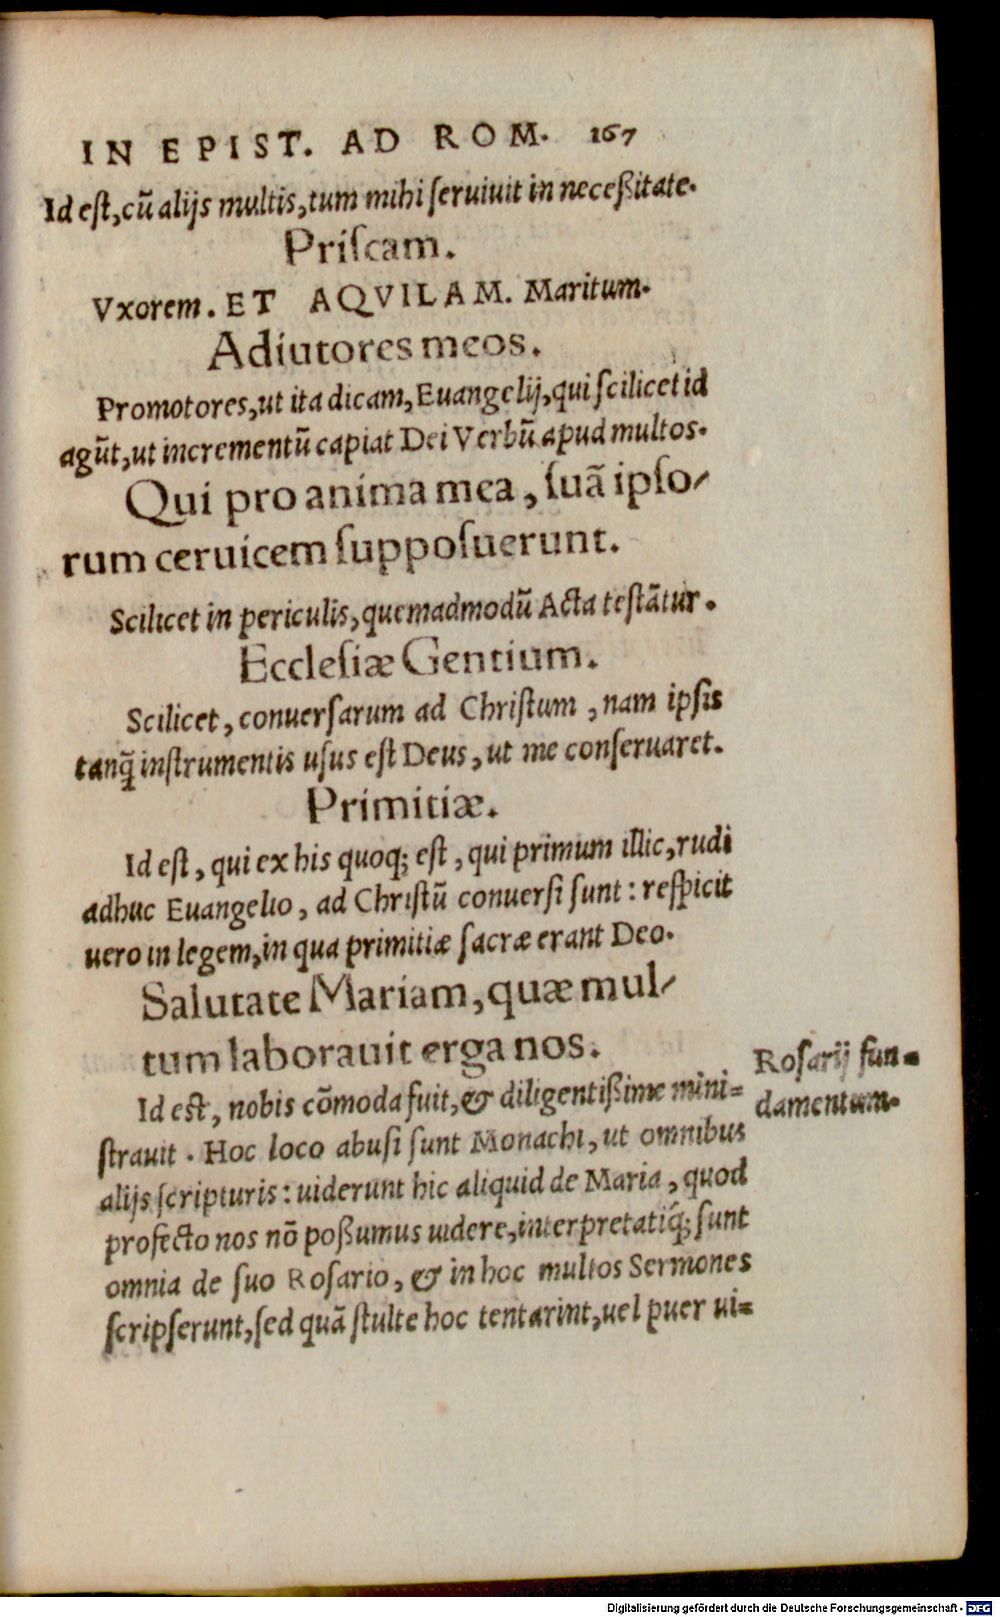 IN EPIST. AD ROM. 167
Id eſt, cũ alijs multis, tum mihi ſeruiuit in neceßitate.
Priſcam.
Vxorem. ET AQVILAM. Maritum.
Adiutores meos.
Promotores, ut ita dicam, Euangelij, qui ſcilicet id
agũt, ut incrementũ capiat Dei Verbũ apud multos.
Qui pro anima mea, ſuã ipſo-
rum ceruicem ſuppoſuerunt.
Scilicet in periculis, quemadmodũ Acta teſtãtur.
Eccleſiæ Gentium.
Scilicet, conuerſarum ad Chriſtum, nam ipſis
tanq̃ inſtrumentis uſus eſt Deus, ut me conſeruaret.
Primitiæ.
Id eſt, qui ex his quoq; eſt, qui primum illic, rudi
adhuc Euangelio, ad Chriſtũ conuerſi ſunt: reſpicit
uero in legem, in qua primitiæ ſacræ erant Deo.
Salutate Mariam, quæ mul-
tum laborauit erga nos.
Roſarij fun=
damentum.
Id eſt, nobis cõmoda fuit, & diligentißime mini=
ſtrauit. Hoc loco abuſi ſunt Monachi, ut omnibus
alijs ſcripturis: uiderunt hic aliquid de Maria, quod
profecto nos nõ poßumus uidere, interpretatiq́; ſunt
omnia de ſuo Roſario, & in hoc multos Sermones
ſcripſerunt, ſed quã ſtulte hoc tentarint, uel puer ui=
Digitalisierung gefördert durch die Deutsche Forschungsgemeinschaft - DFG